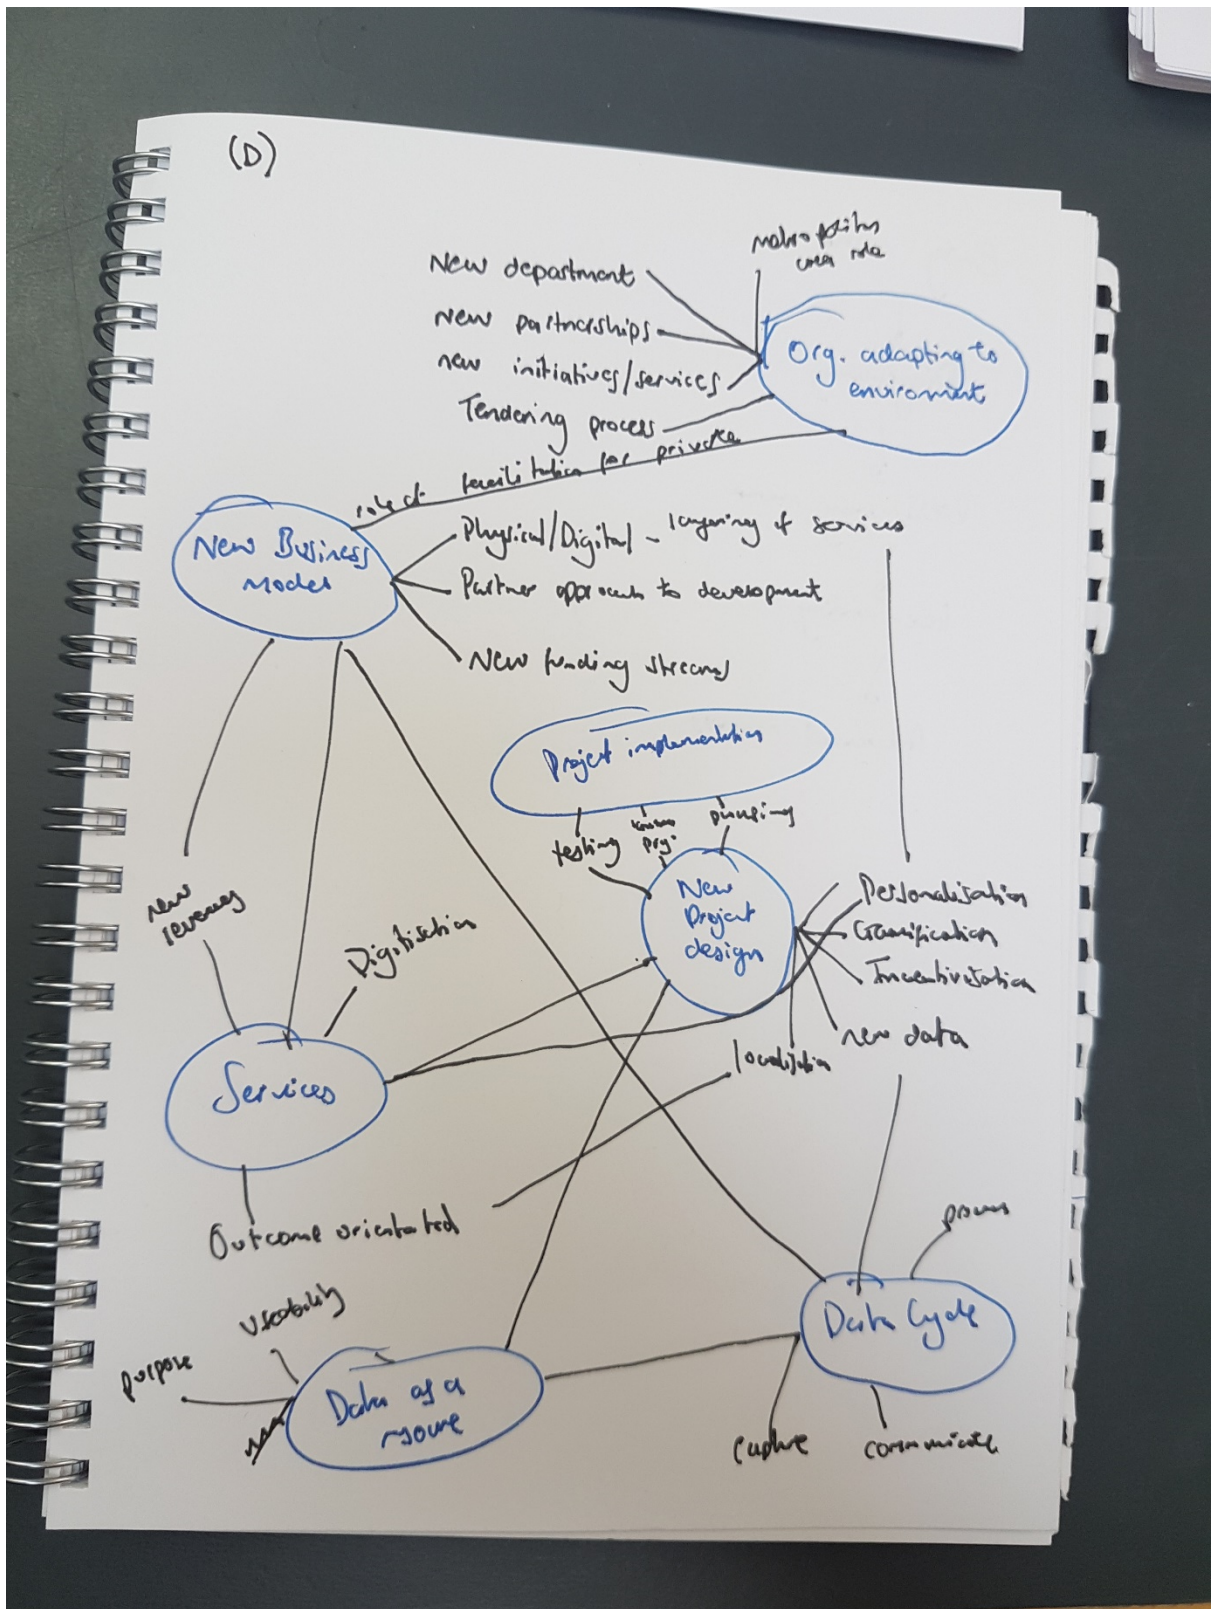 (D)
New department
New partnerships
new initiatives/services
Tendering process
area role
Org. adapting to
enviroment
role of facilitation for private
New Business
model
Physical/Digital - layering of services
Partner approach to development
New funding streams
Project implementation
testing
phasing
New
Project
design
Personalisation
Gamification
Incentivisation
new data
localisation
new
revenues
Digitisation
Services
Outcome orientated
useability
purpose
Data as a
resource
Data Cycle
process
capture
communicate